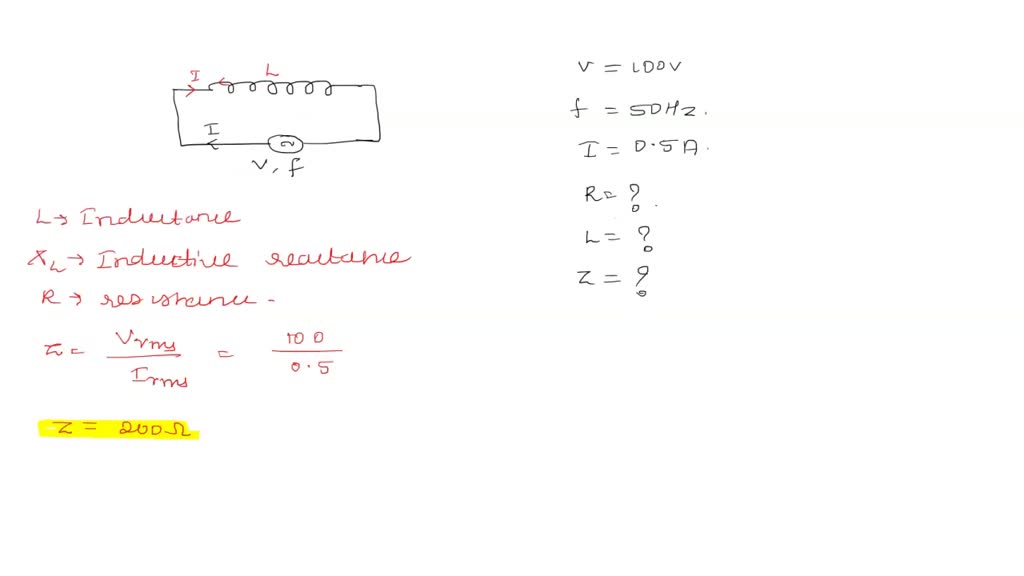 I L
I
V, f
V = 100V
f = 50Hz.
I = 0.5A.
R = ? .
L = ?
Z = ?
L → Inductance
XL → Inductive reactance
R → resistance -
Z = Vrms / Irms = 100 / 0.5
Z = 200Ω